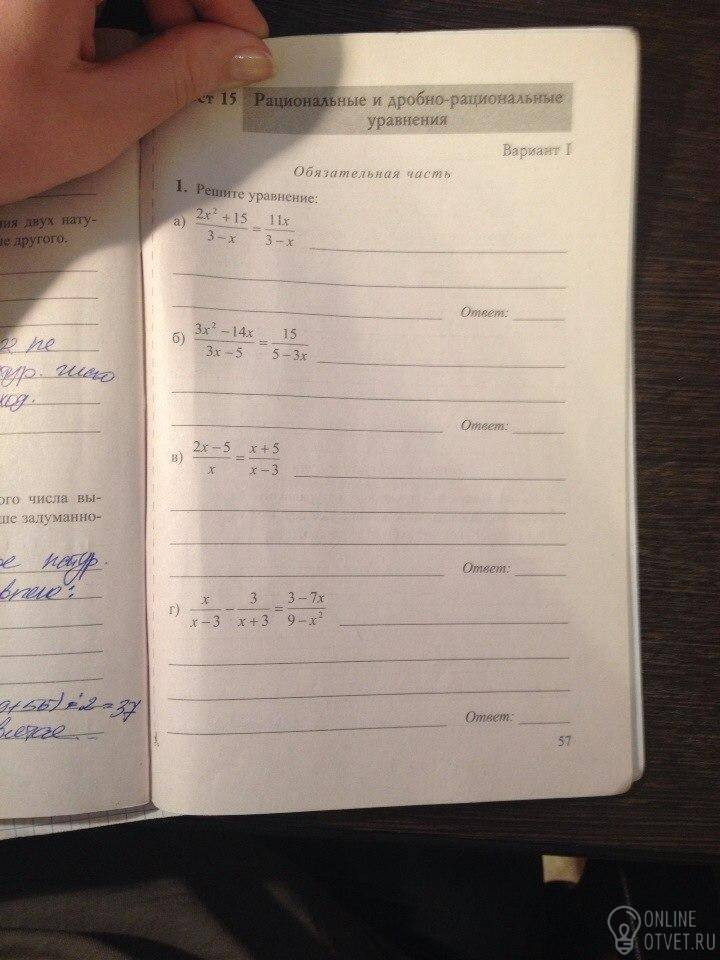 ния двух нату-
ше другого.
ого числа вы-
ше задуманно-
15 Рациональные и дробно-рациональные
уравнения
Вариант I
Обязательная часть
1. Решите уравнение:
а) (2x² + 15)/(3 − x) = 11x/(3 − x)
Ответ:
б) (3x² − 14x)/(3x − 5) = 15/(5 − 3x)
Ответ:
в) (2x − 5)/x = (x + 5)/(x − 3)
Ответ:
г) x/(x − 3) − 3/(x + 3) = (3 − 7x)/(9 − x²)
Ответ:
57
ONLINE
OTVET.RU